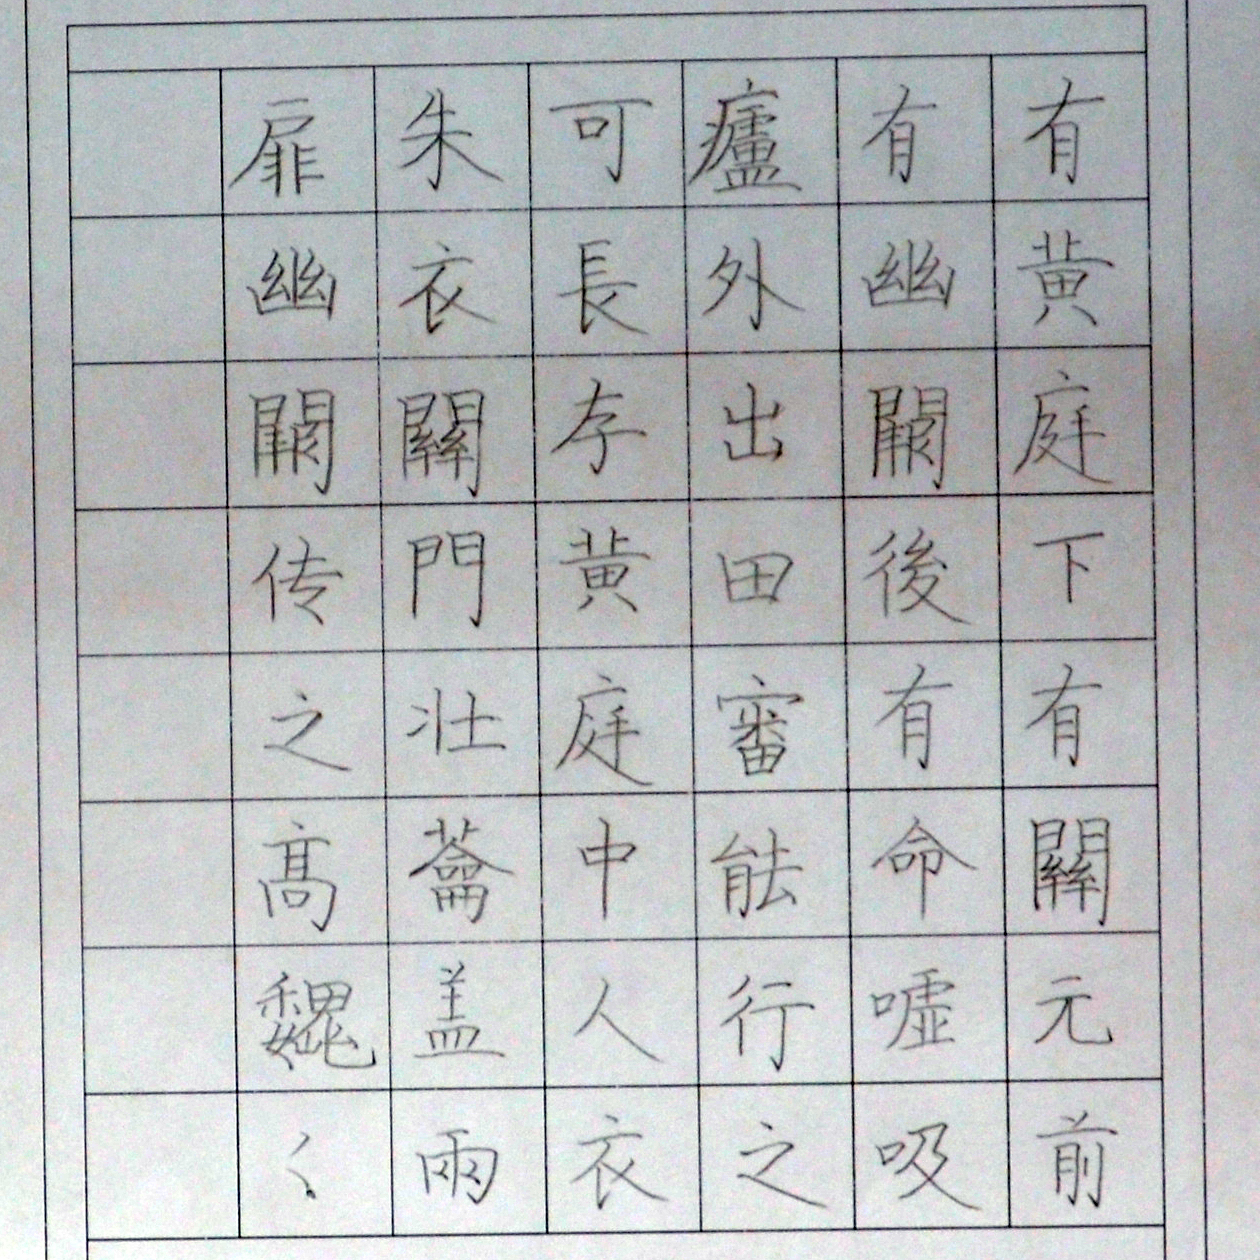 有黄庭下有關元前
有幽闕後有命噓吸
廬外出田審能行之
可長存黄庭中人衣
朱衣關門壯蘥盖兩
扉幽闕传之高魏〻